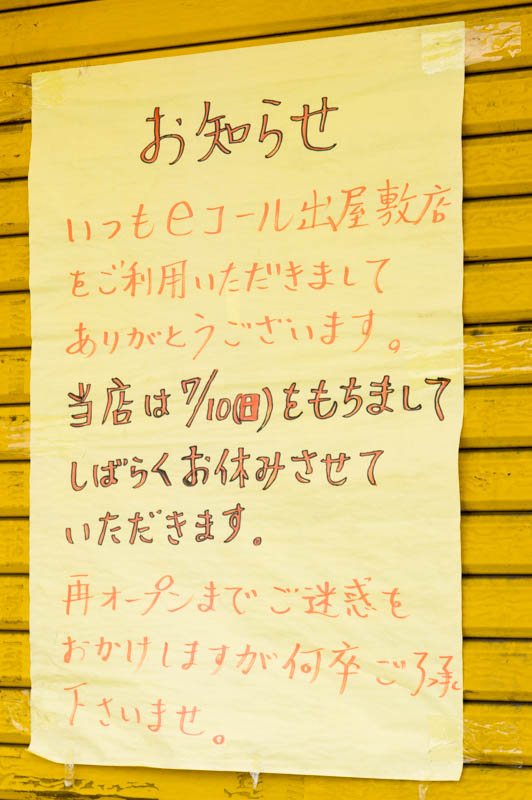 お知らせ
いつもeコール出屋敷店
をご利用いただきまして
ありがとうございます。
当店は7/10(日)をもちまして
しばらくお休みさせて
いただきます。
再オープンまでご迷惑を
おかけしますが何卒ご了承
下さいませ。